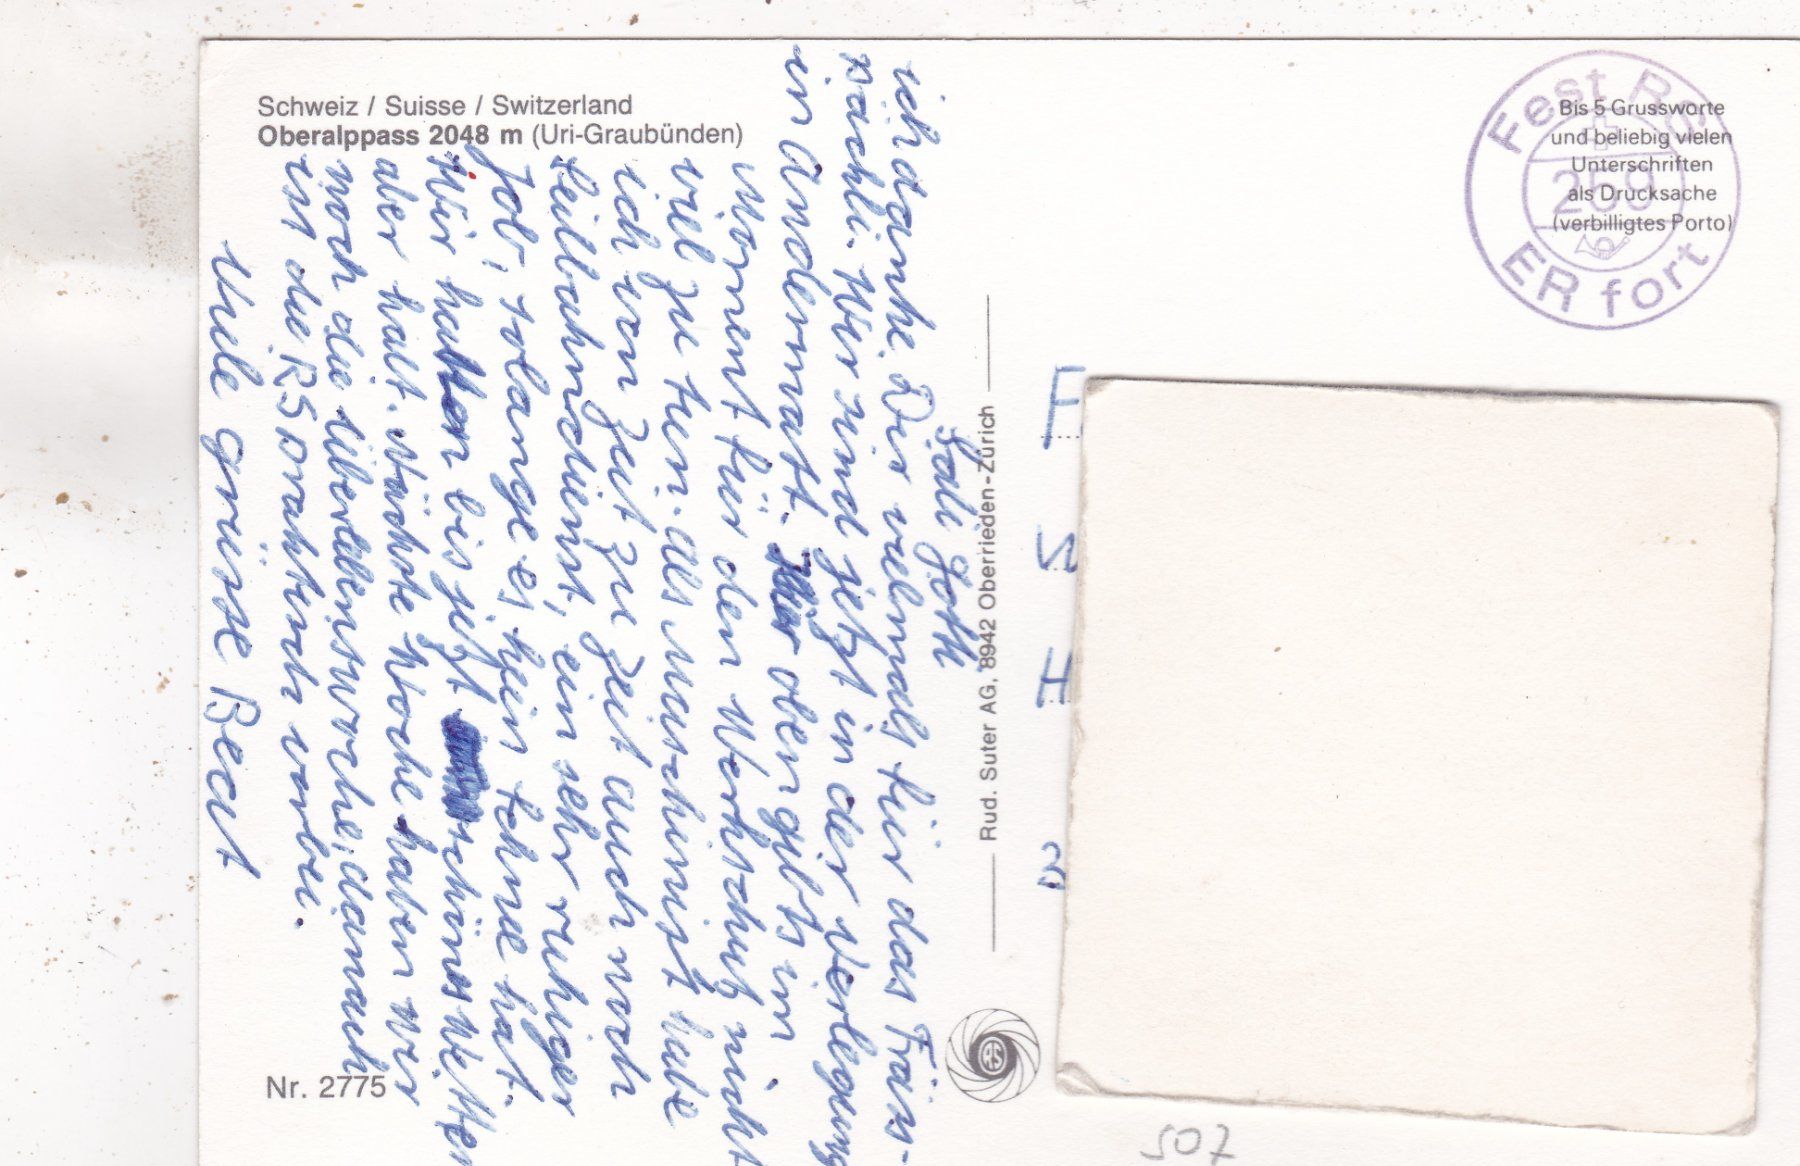 Schweiz / Suisse / Switzerland
Oberalppass 2048 m (Uri-Graubünden)
Sali Gotti
ich danke Dir vielmals für das Fräss-
päckli. Wir sind jetzt in der Verlegung
in Andermatt. Hier oben gibts im
Moment für den Werkschutz nicht
viel zu tun. Als Maschinist habe
ich von Zeit zu Zeit auch noch
Seilbahndienst, ein sehr ruhiger
Job, solange es kein Schnee hat.
Wir hatten bis jetzt schönes Wetter
aber kalt. Nächste Woche haben wir
noch die Überlebenswoche, danach
ist die RS praktisch vorbei.
Viele grüsse Beat
Nr. 2775
Rud. Suter AG, 8942 Oberrieden-Zürich
RS
Fest R
259
ER fort
Bis 5 Grussworte
und beliebig vielen
Unterschriften
als Drucksache
(verbilligtes Porto)
F
H
507